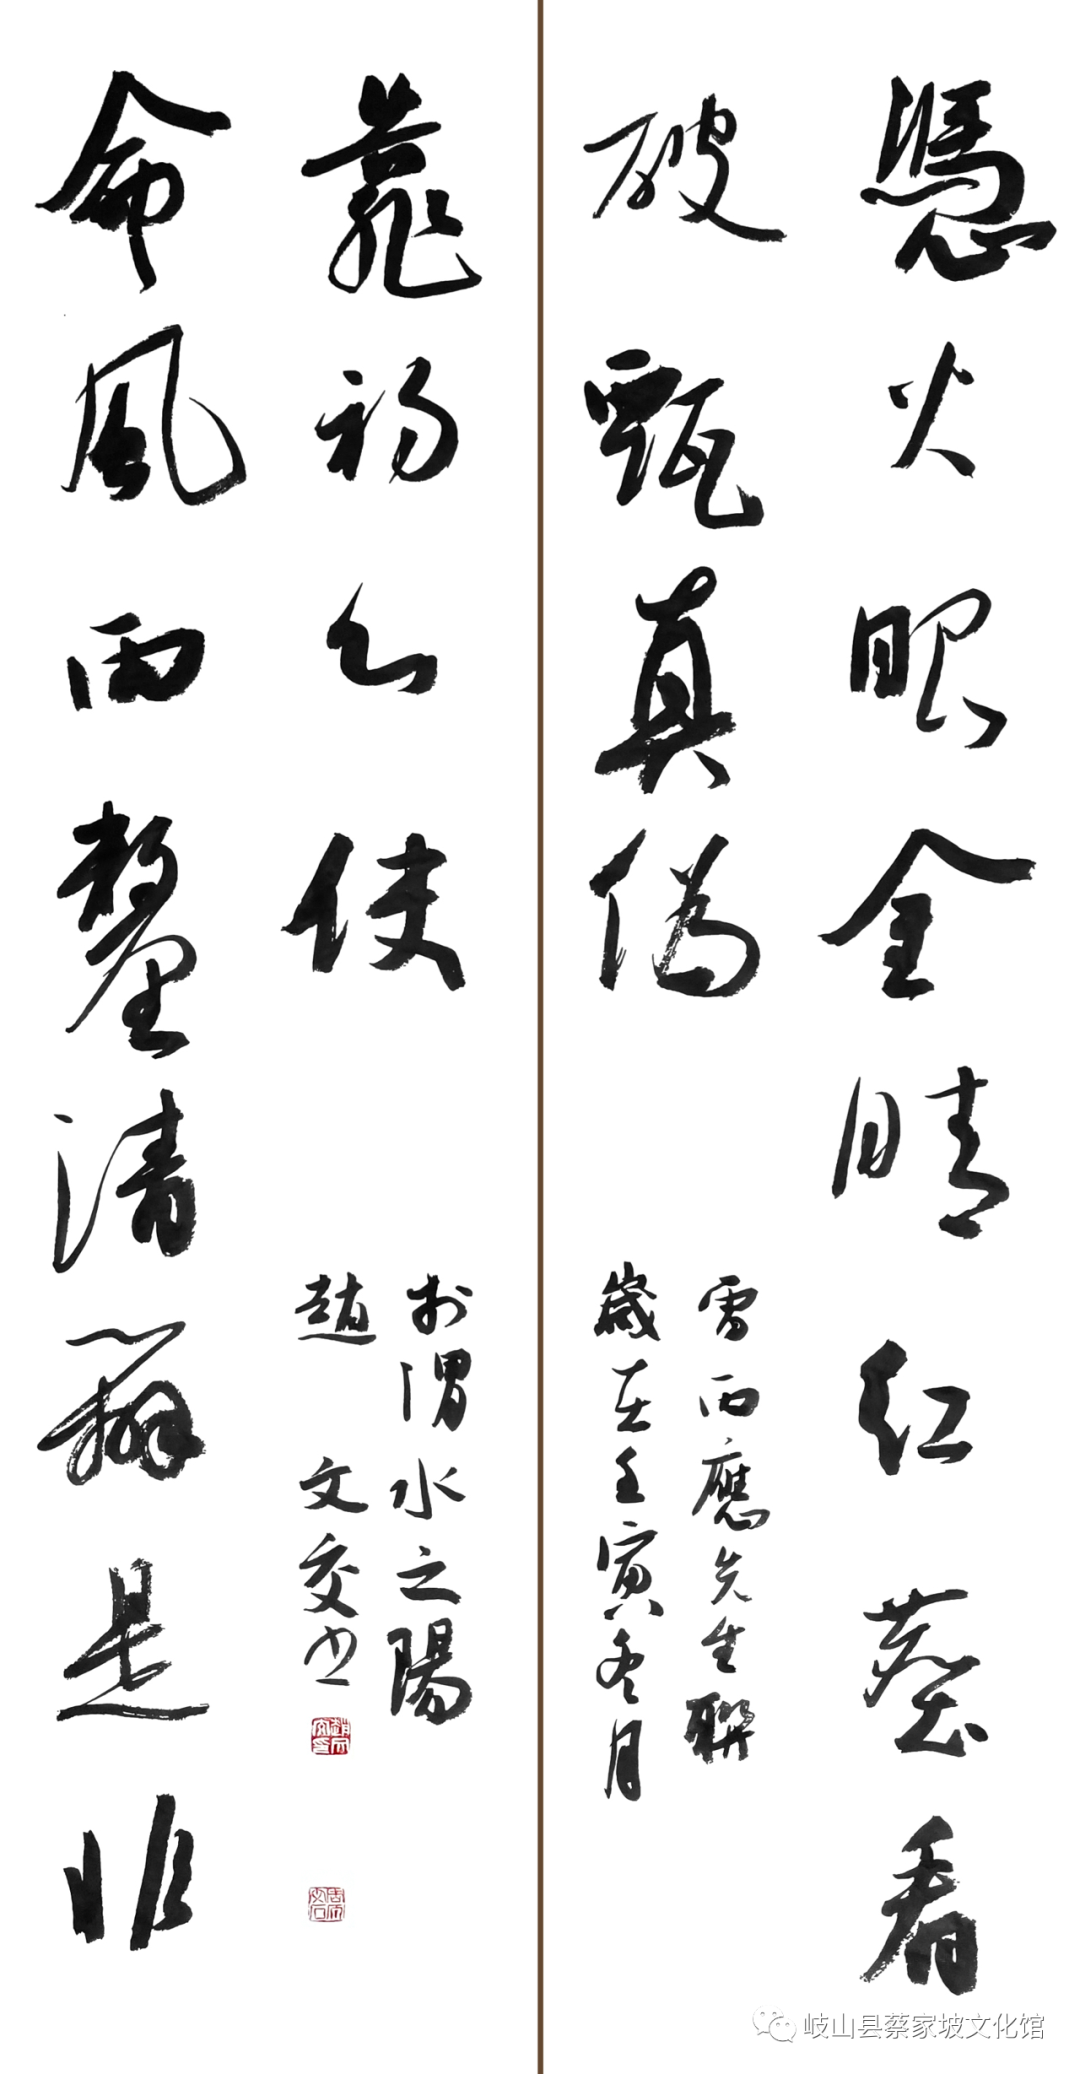 憑火眼金睛紅葵看
破甄真偽
雷雨應先生聯
歲在壬寅冬月
靠初心使
命風雨釐清辨是非
於渭水之陽
趙文交书
岐山县蔡家坡文化馆